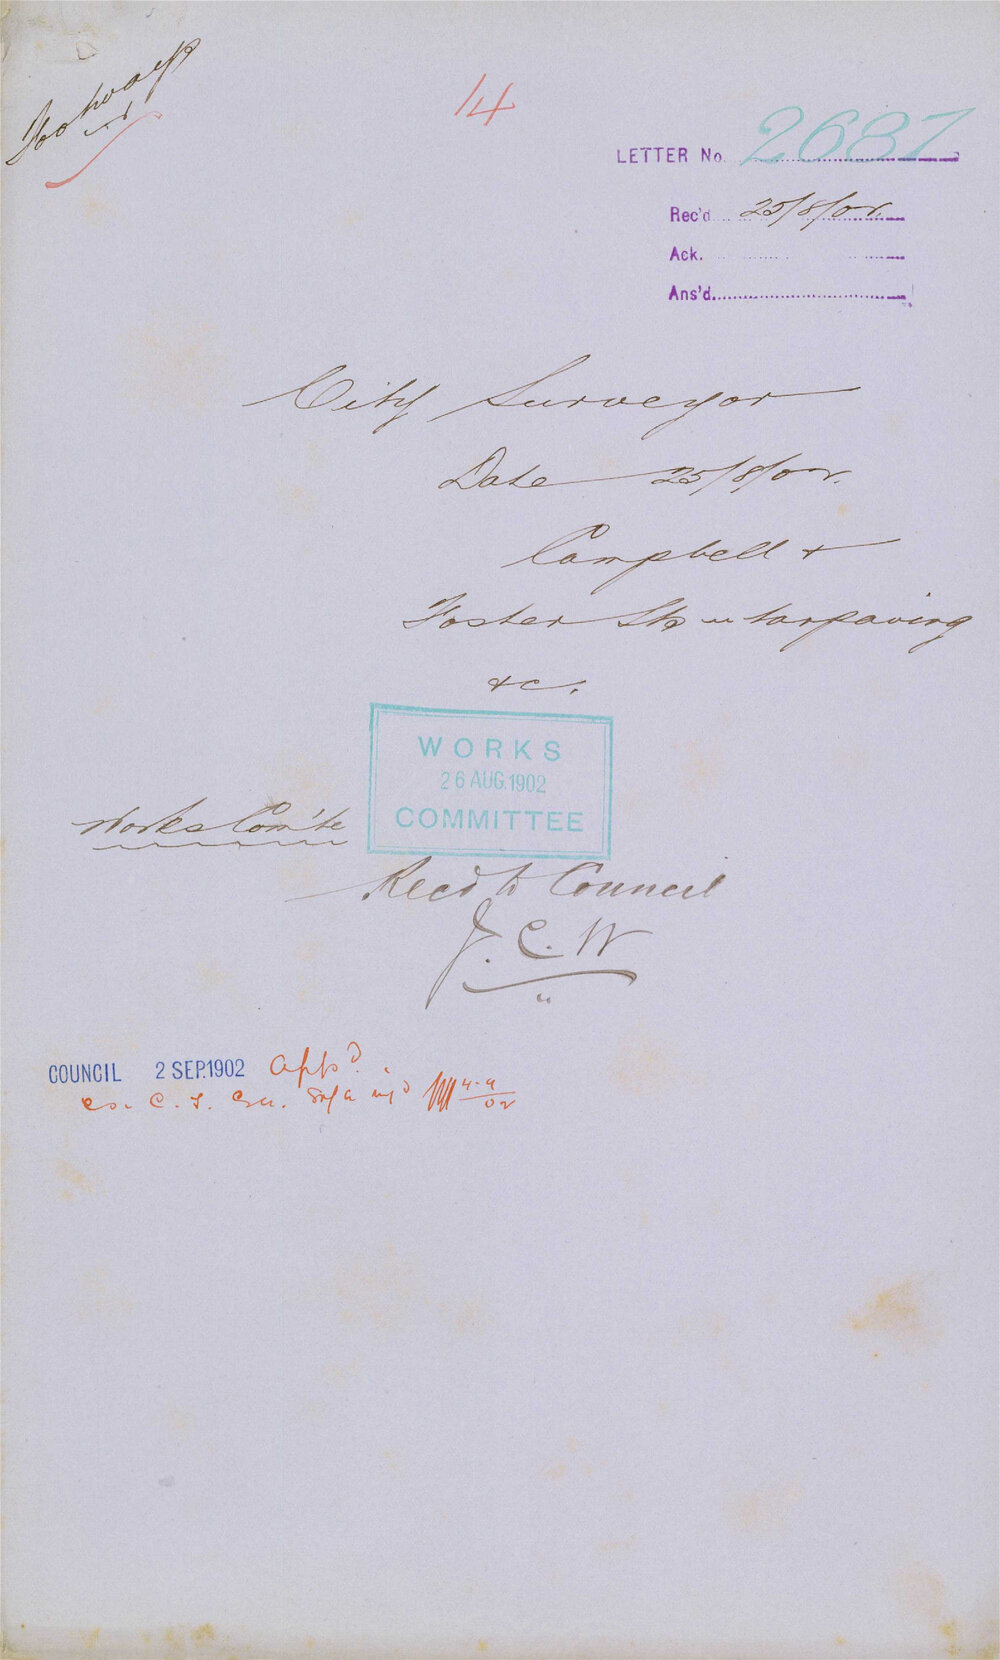 Footways
14
LETTER No. 2687
Rec'd 25/8/02.
Ack.
Ans'd.
City Surveyor
Date 25/8/02.
Campbell &
Foster Sts tarpaving
&c.
WORKS
26 AUG. 1902
COMMITTEE
Works Com'te
Recd to Council
J. C. W
COUNCIL 2 SEP. 1902 Appd.
C. T. 4.9
02